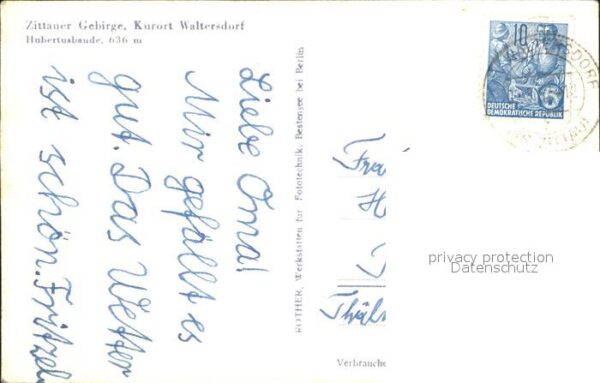 Zittauer Gebirge, Kurort Waltersdorf
Hubertusbaude, 636 m
Liebe Oma!
Mir gefällt es
gut. Das Wetter
ist schön. Fritzel
ROTHER, Werkstätten für Fototechnik, Bestensee bei Berlin
10
5
DEUTSCHE
DEMOKRATISCHE REPUBLIK
Thäl
Verbrauche
privacy protection
Datenschutz